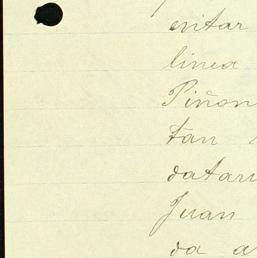 evitar
linea
Piñon
tan
Juan
da a